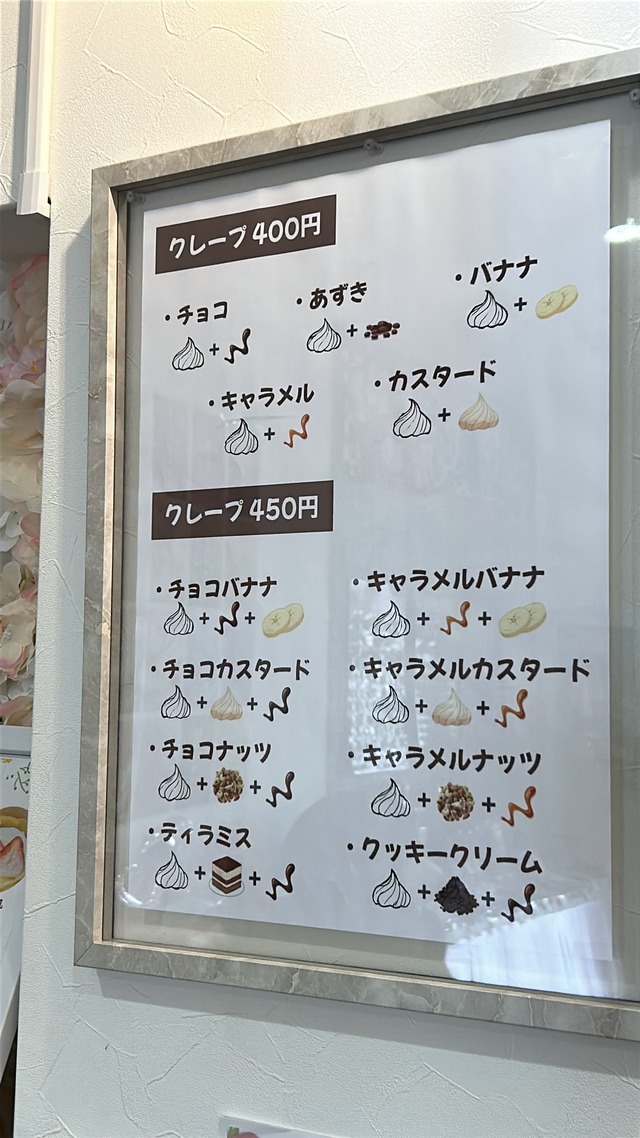 クレープ 400円
・チョコ
・あずき
・バナナ
・キャラメル
・カスタード
クレープ 450円
・チョコバナナ
・キャラメルバナナ
・チョコカスタード
・キャラメルカスタード
・チョコナッツ
・キャラメルナッツ
・ティラミス
・クッキークリーム